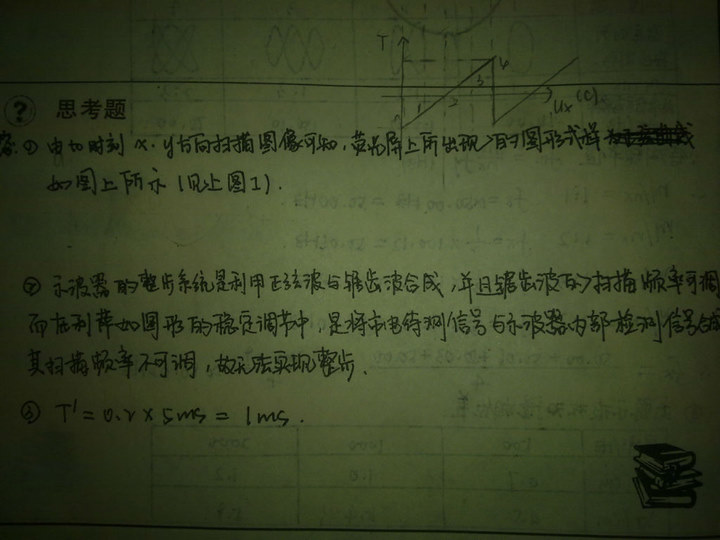 T
4
3
1 2
Ux (C)
? 思考题
答:① 由如时刻 x. y方向扫描图像可知,荧光屏上所出现的图形式样
如图上所示(见上图1).
② 示波器的整步系统是利用正弦波与锯齿波合成,并且锯齿波的扫描频率可调
而在利萨如图形的稳定调节中,是将市电待测信号与示波器内部检测信号合成
其扫描频率不可调,故无法实现整步.
③ T' = 0.2 × 5ms = 1ms.